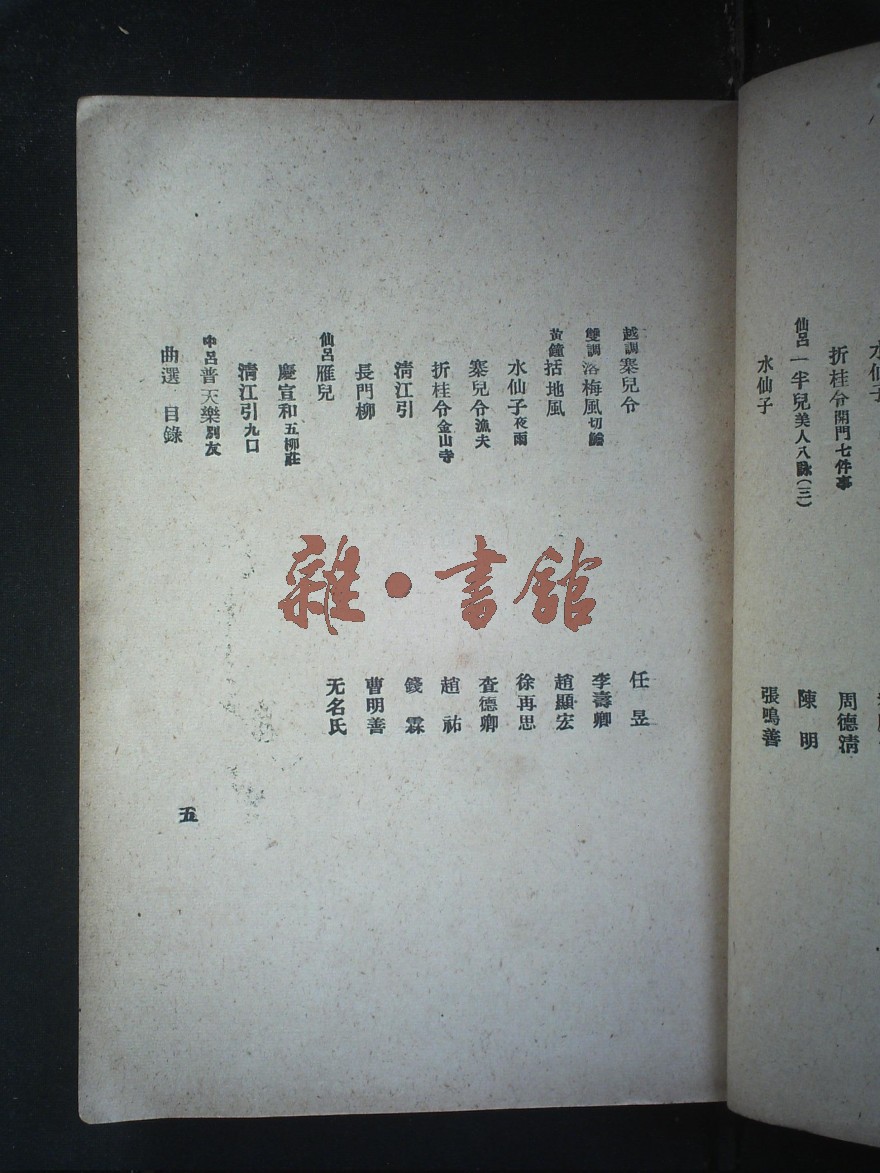 水仙子
折桂令開門七件事 周德淸
仙呂一半兒美人八詠(三) 陳明
水仙子 張鳴善
越調寨兒令 任昱
雙調落梅風切鱠 李壽卿
黃鐘括地風 趙顯宏
水仙子夜雨 徐再思
寨兒令漁夫 查德卿
折桂令金山寺 趙祐
淸江引 錢霖
長門柳 曹明善
仙呂雁兒 无名氏
慶宣和五柳莊
淸江引九口
中呂普天樂別友
曲選 目錄
五
雜·書館